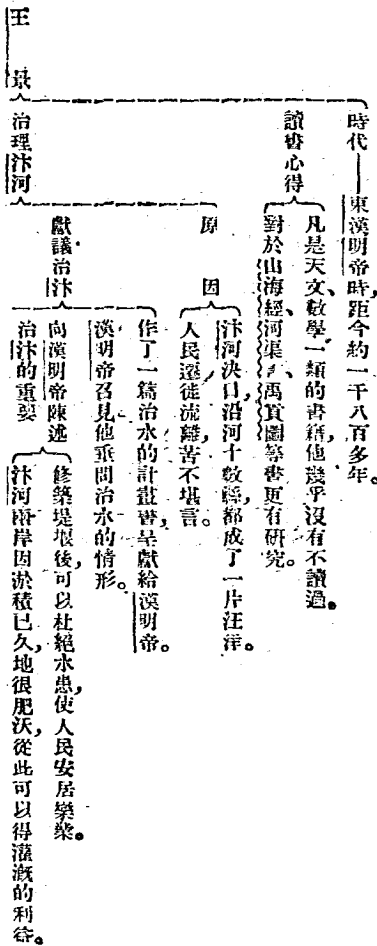 王景
時代——東漢明帝時,距今約一千八百多年。
讀書心得
凡是天文、數學一類的書籍,他幾乎沒有不讀過。
對於山海經、河渠書、禹貢圖等書更有研究。
治理汴河
原因
汴河決口,沿河十數縣,都成了一片汪洋。
人民遷徙流離,苦不堪言。
獻議治汴
作了一篇治水的計畫書,呈獻給漢明帝。
漢明帝召見他,垂問治水的情形。
向漢明帝陳述
治汴的重要
修築堤堰後,可以杜絕水患,使人民安居樂業。
汴河兩岸因淤積已久,地很肥沃,從此可以得灌溉的利益。